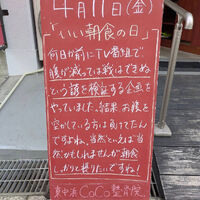 4月11日(金)
「いい朝食の日」
何日か前にTV番組で
腹が減っては戦はできぬ
という諺を検証する企画を
やっていました、結果お腹を
空かしている方は負けてたん
ですよね、当然といえば当
然かもしれませんが朝食
しっかりと摂りたいですね!
東中浜CoCo整骨院